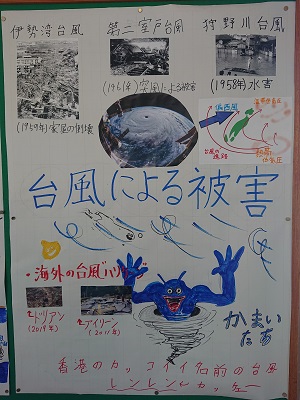 伊勢湾台風
第二室戸台風
狩野川台風
(1959年)家屋の倒壊
(1961年)突風による被害
(1958年)水害
偏西風
台風の
進路
台風による被害
・海外の台風(ハリケーン)
↑ドリアン
(2019年)
↑アイリーン
(2011年)
かまい
たち
香港のカッコイイ名前の台風